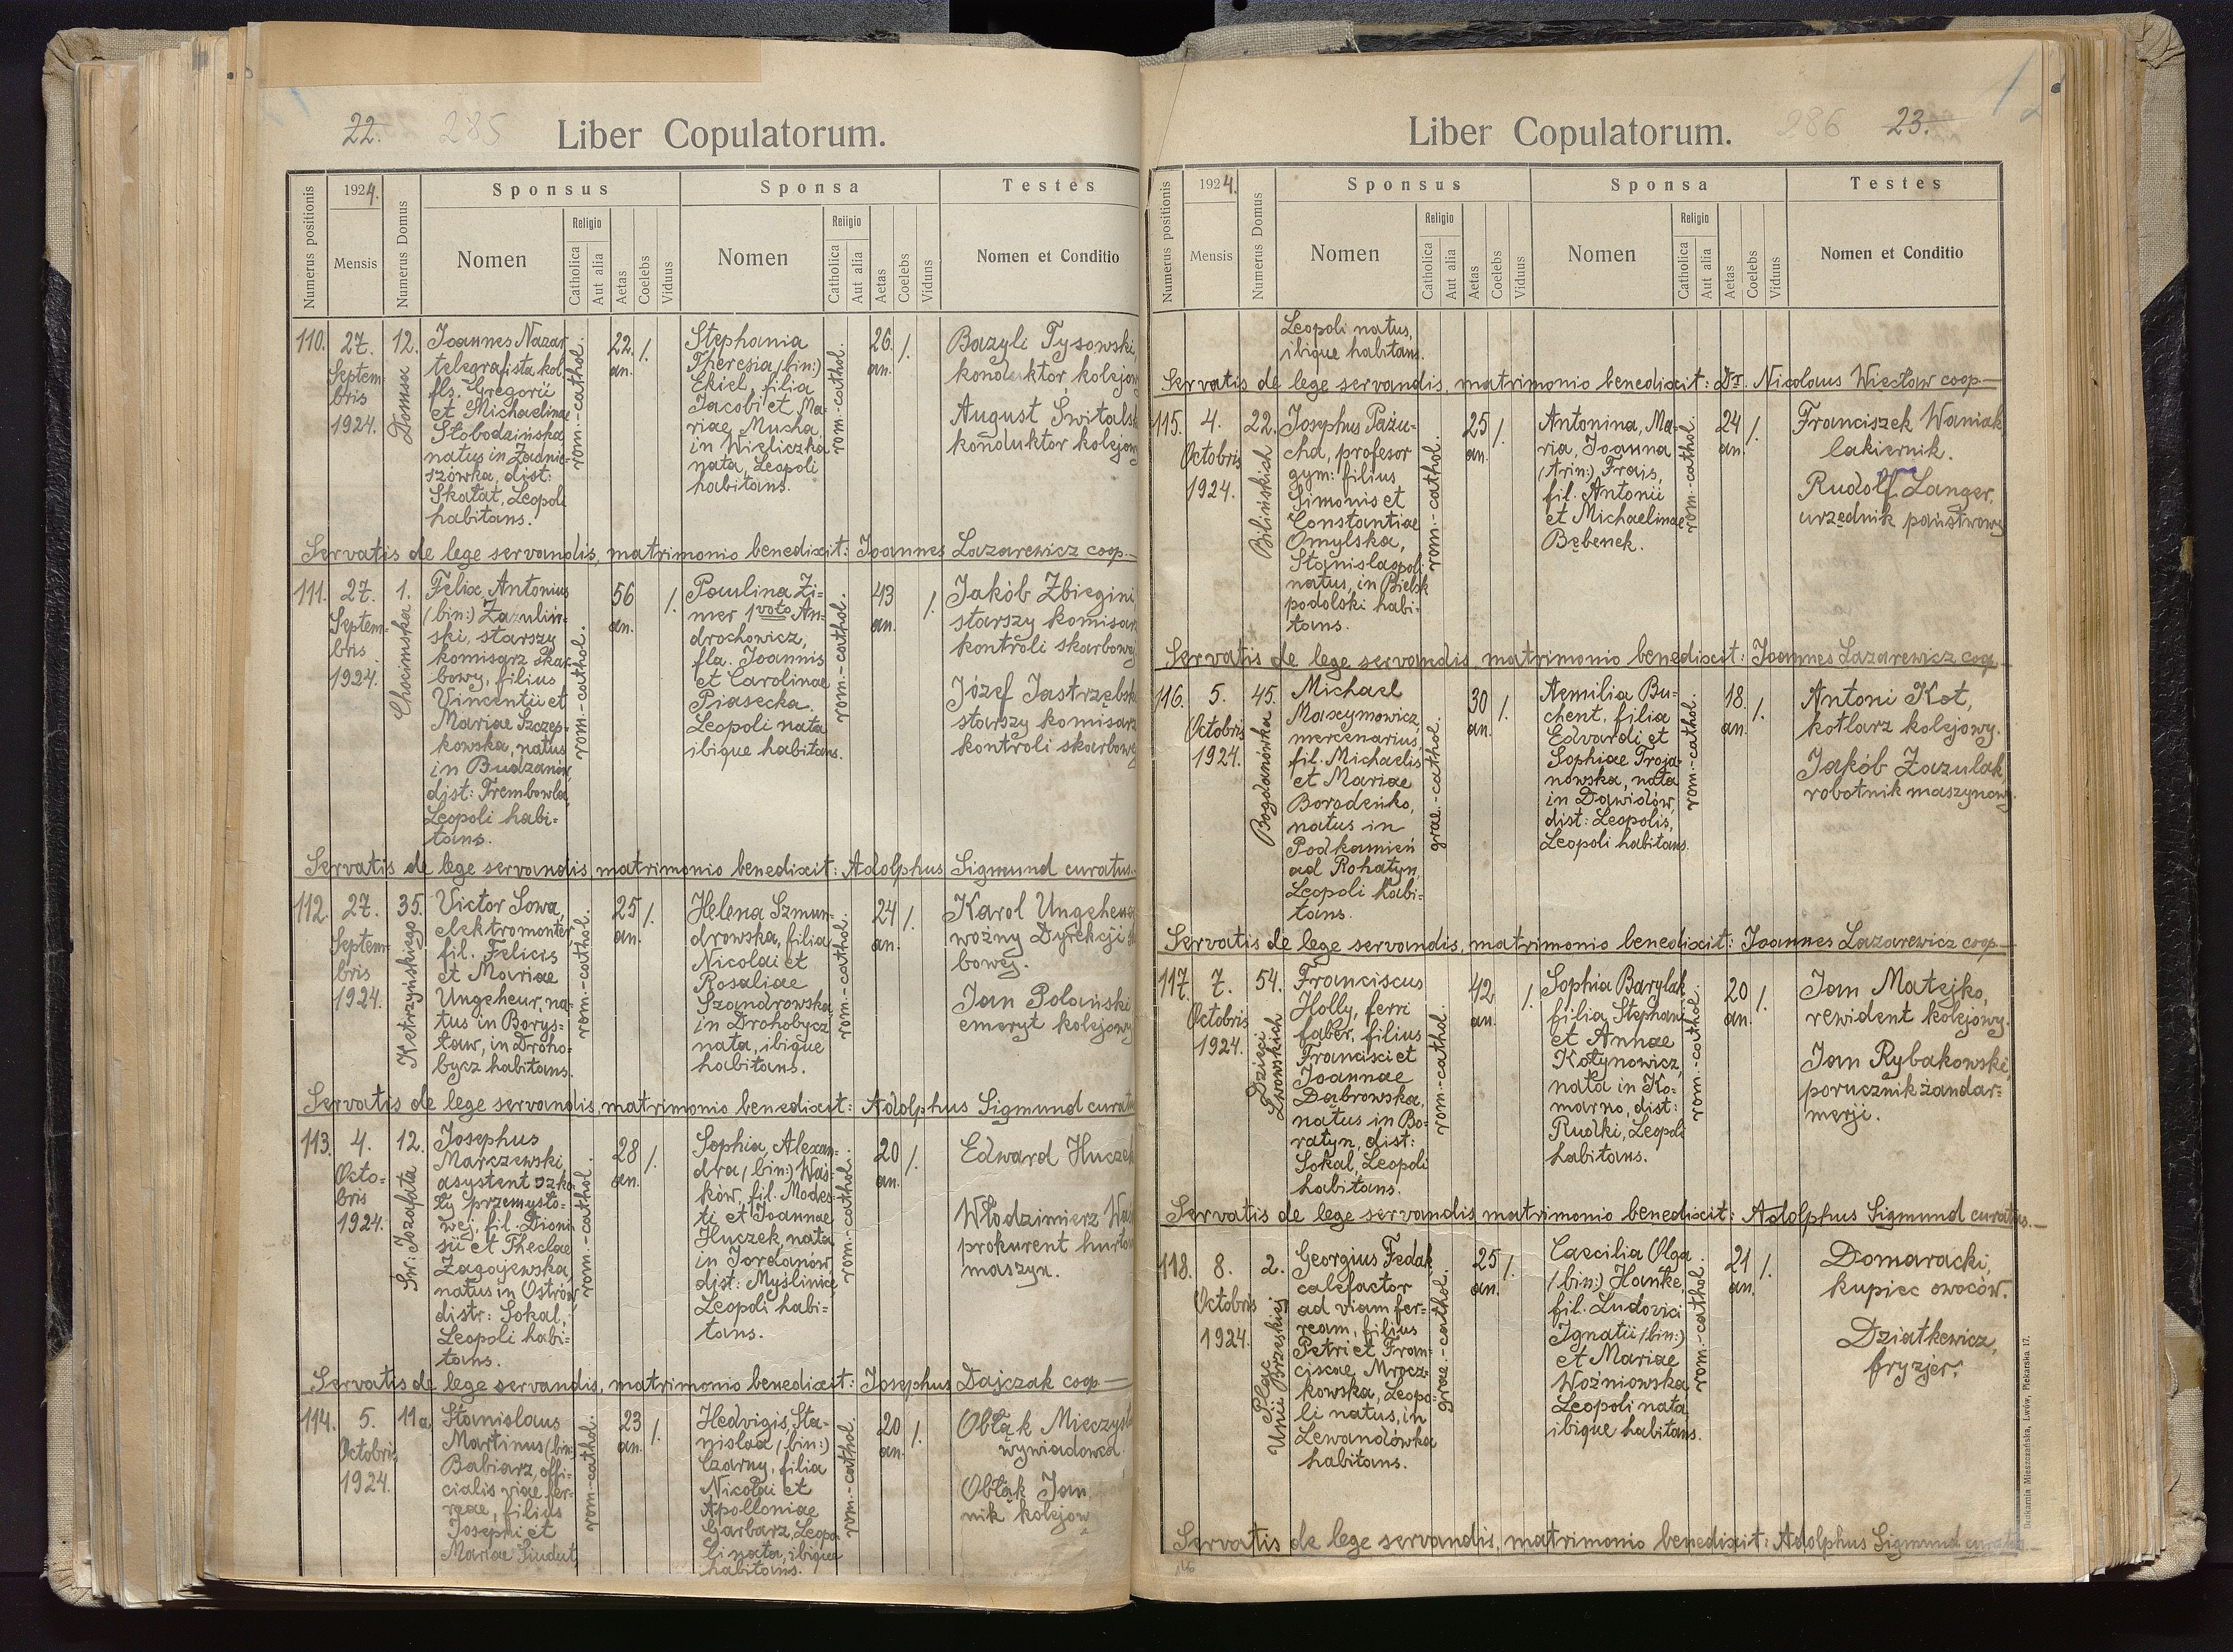 22. 285
Liber Copulatorum.
Numerus positionis
1924.
Mensis
Numerus Domus
Sponsus
Nomen
Religio
Catholica
Aut alia
Aetas
Coelebs
Viduus
Sponsa
Nomen
Religio
Catholica
Aut alia
Aetas
Coelebs
Viduus
Testes
Nomen et Conditio
110.
27.
Septem
bris
1924.
12.
Domsa
Joannes Nazar
telegrafista kol.
fls. Gregorii
et Michaelinae
Słobodzińska,
natus in Zadnie-
szówka, dist:
Skałat, Leopoli
habitans.
rom.-cathol.
22.
an.
/.
Stephania
Theresia (bin:)
Ekiel, filia
Jacobi et Ma-
riae Mucha
in Wieliczka
nata, Leopoli
habitans.
rom.-cathol.
26.
an.
/.
Bazyli Tysowski,
konduktor kolejow
August Świtalsk
konduktor kolejow
Servatis de lege servandis, matrimonio benedixit: Joannes Lazarewicz coop.—
111.
27.
Septem-
bris
1924.
1.
Chocimska
Felix, Antonius
(bin:) Zazuliń-
ski, starszy
komisarz skar-
bowy, filius
Vincentii et
Mariae Szczep-
kowska, natus
in Budzanów,
dist: Trembowla,
Leopoli habi-
tans.
rom.-cathol.
56
an.
/.
Paulina Zi-
mer 1voto An-
drochowicz,
fla. Joannis
et Carolinae
Piasecka.
Leopoli nata
ibique habitans.
rom.-cathol.
43
an.
/.
Jakób Zbiegini,
starszy komisar
kontroli skarbowej
Józef Jastrzębsk
starszy komisarz
kontroli skarbowej
Servatis de lege servandis, matrimonio benedixit: Adolphus Sigmund curatus.
112.
27.
Septem-
bris
1924.
35.
Kętrzyńskiego
Victor Sowa,
elektromonter,
fil. Felicis
et Mariae
Ungeheur, na-
tus in Borys-
ław, in Droho-
bycz habitans.
rom.-cathol.
25
an.
/.
Helena Szmun-
drowska, filia
Nicolai et
Rosaliae
Szandrowska,
in Drohobycz
nata, ibique
habitans.
rom.-cathol.
24
an.
/.
Karol Ungeheue
woźny Dyrekcji
bowej.
Jan Polański
emeryt kolejowy
Servatis de lege servandis, matrimonio benedixit: Adolphus Sigmund curatu
113.
4.
Octo-
bris
1924.
12.
Św. Jozafata
Josephus
Marczewski,
asystent szko-
ły przemysło-
wej, fil. Dioni-
sii et Theclae
Zagajewska,
natus in Ostrów,
distr: Sokal,
Leopoli habi-
tans.
rom.-cathol.
28
an.
/.
Sophia, Alexan-
dra (bin:) Waś-
ków, fil. Modes-
ti et Joannae
Huczek, nata
in Jordanów,
dist: Myślinice,
Leopoli habi-
tans.
rom.-cathol.
20
an.
/.
Edward Huczek
Włodzimierz Waś
prokurent hurtow
maszyn.
Servatis de lege servandis, matrimonio benedixit: Josephus Dajczak coop—
114.
5.
Octobris
1924.
11a.
Stanislaus
Martinus (bin:)
Babiarz, offi-
cialis viae fer-
reae, filius
Josephi et
Mariae Siudut,
rom.-cathol.
23
an.
/.
Hedvigis, Sta-
nislaa (bin:)
Czarny, filia
Nicolai et
Apolloniae
Garbarz, Leopo-
li nata, ibique
habitans.
rom.-cathol.
20
an.
/.
Obłąk Mieczysł
wywiadowca.
Obłąk Jan
nik kolejow
Liber Copulatorum.
286 23.
Numerus positionis
1924.
Mensis
Numerus Domus
Sponsus
Nomen
Religio
Catholica
Aut alia
Aetas
Coelebs
Viduus
Sponsa
Nomen
Religio
Catholica
Aut alia
Aetas
Coelebs
Viduus
Testes
Nomen et Conditio
Leopoli natus,
ibique habitans.
Servatis de lege servandis, matrimonio benedixit: Dr. Nicolaus Więcław coop—
115.
4.
Octobris
1924.
22.
Bilińskich
Josephus Pażu-
cha, profesor
gym: filius
Simonis et
Constantiae
Omylska,
Stanislaopoli
natus, in Bielsk
podolski habi-
tans.
rom.-cathol.
25
an.
/.
Antonina, Ma-
ria, Joanna
(trin:) Frais,
fil. Antonii
et Michaelinae
Bębenek.
rom.-cathol.
24
an.
/.
Franciszek Waniak
lakiernik.
Rudolf Langer,
urzędnik państwowy
Servatis de lege servandis, matrimonio benedixit: Joannes Lazarewicz coop
116.
5.
Octobris
1924.
45.
Bogdanówka
Michael
Maxymowicz,
mercenarius,
fil. Michaelis
et Mariae
Borodeńko,
natus in
Podkamień
ad Rohatyn,
Leopoli habi-
tans.
grae.-cathol.
30
an.
/.
Aemilia Bu-
chent, filia
Edvardi et
Sophiae Troja-
nowska, nata
in Dawidów,
dist: Leopolis,
Leopoli habitans.
rom.-cathol.
18.
an.
/.
Antoni Kot,
kotlarz kolejowy.
Jakób Zazulak,
robotnik maszynowy.
Servatis de lege servandis, matrimonio benedixit: Joannes Lazarewicz coop—
117.
7.
Octobris
1924.
54.
Dzieci
Lwowskich
Franciscus
Holly, ferri
faber, filius
Francisci et
Joannae
Dąbrowska,
natus in Bo-
ratyn, dist:
Sokal, Leopoli
habitans.
rom.-cathol.
42
an.
/.
Sophia Barylak,
filia Stephani
et Annae
Kotynowicz,
nata in Ko-
marno, dist:
Rudki, Leopoli
habitans.
rom.-cathol.
20
an.
/.
Jan Matejko,
rewident kolejowy.
Jan Rybakowski,
porucznik żandar-
merji.
Servatis de lege servandis matrimonio benedixit: Adolphus Sigmund curatus.—
118.
8.
Octobris
1924.
2.
Plac
Unii Brzeskiej
Georgius Fedak,
calefactor
ad viam fer-
ream, filius
Petri et Fran-
ciscae Mrocz-
kowska, Leopo-
li natus, in
Lewandówka
habitans.
grae.-cathol.
25
an.
/.
Caecilia Olga
(bin:) Hanke,
fil. Ludovici
Ignatii (bin:)
et Mariae
Woźniowska,
Leopoli nata
ibique habitans.
rom.-cathol.
21
an.
/.
Domaracki,
kupiec owoców.
Dziatkewicz,
fryzjer.
Servatis de lege servandis, matrimonio benedixit: Adolphus Sigmund curatus.—
Drukarnia Mieszczańska, Lwów, Piekarska 17.